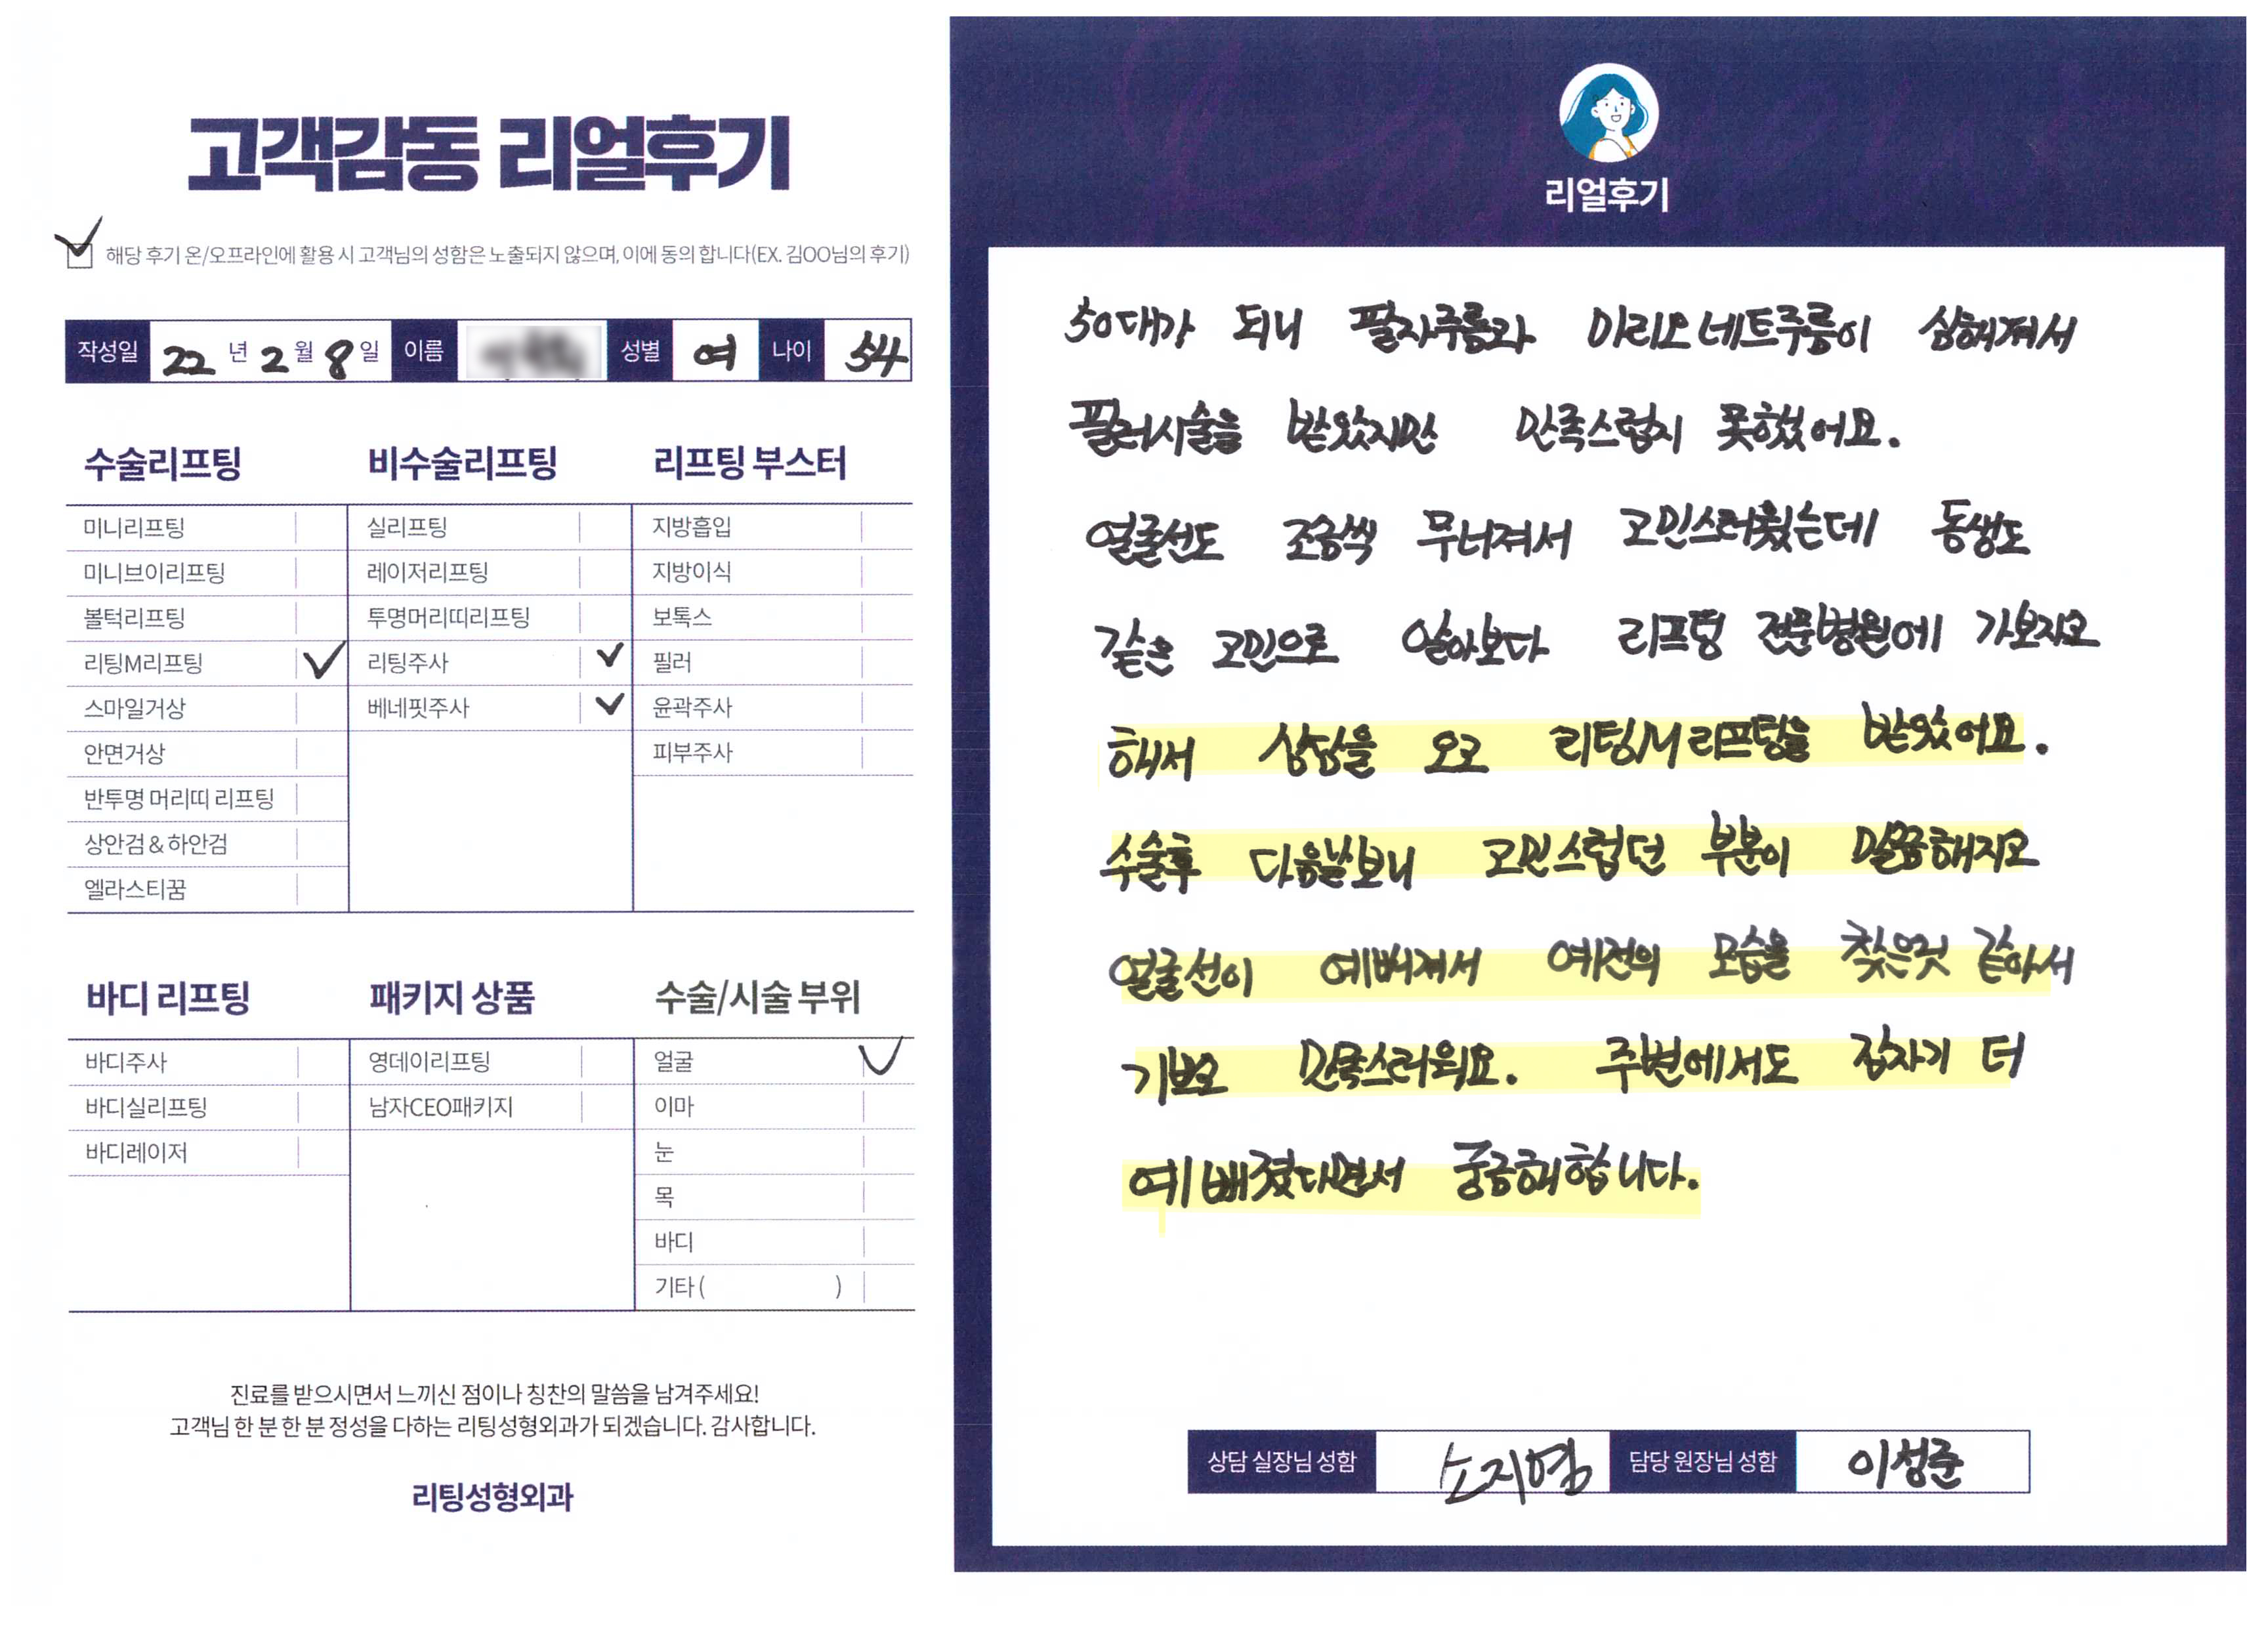 고객감동 리얼후기
해당 후기 온/오프라인에 활용 시 고객님의 성함은 노출되지 않으며, 이에 동의 합니다(EX. 김OO님의 후기)
작성일 22 년 2 월 8 일 이름 성별 여 나이 54
수술리프팅
미니리프팅
미니브이리프팅
볼턱리프팅
리팅M리프팅
스마일거상
안면거상
반투명 머리띠 리프팅
상안검 & 하안검
엘라스티꿈
비수술리프팅
실리프팅
레이저리프팅
투명머리띠리프팅
리팅주사
베네핏주사
리프팅 부스터
지방흡입
지방이식
보톡스
필러
윤곽주사
피부주사
바디 리프팅
바디주사
바디실리프팅
바디레이저
패키지 상품
영데이리프팅
남자CEO패키지
수술/시술 부위
얼굴
이마
눈
목
바디
기타 ( )
진료를 받으시면서 느끼신 점이나 칭찬의 말씀을 남겨주세요!
고객님 한 분 한 분 정성을 다하는 리팅성형외과가 되겠습니다. 감사합니다.
리팅성형외과
리얼후기
50대가 되니 팔자주름과 마리오네트주름이 심해져서
필러시술을 받았지만 만족스럽지 못했어요.
얼굴선도 조금씩 무너져서 고민스러웠는데 동생도
같은 고민으로 알아보다 리프팅 전문병원에 가보자고
해서 상담을 오고 리팅M리프팅을 받았어요.
수술후 다음날보니 고민스럽던 부분이 말끔해지고
얼굴선이 예뻐져서 예전의 모습을 찾은것 같아서
기쁘고 만족스러워요. 주변에서도 갑자기 더
예뻐졌다면서 궁금해합니다.
상담 실장님 성함 소지영 담당 원장님 성함 이성준